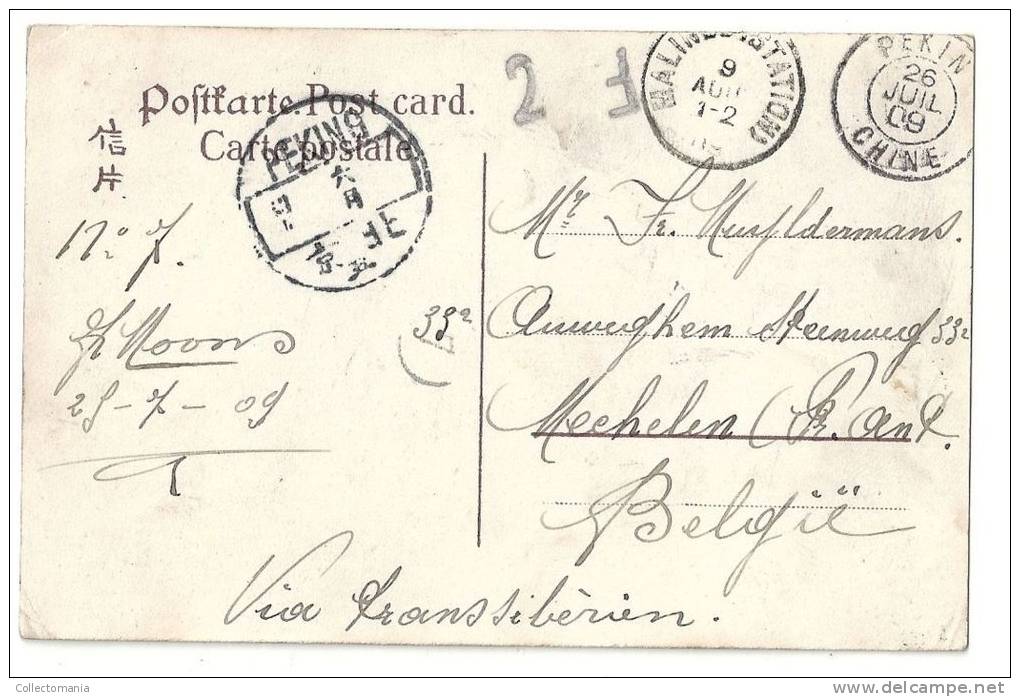 Postkarte. Post card.
Carte postale.
信
片
2
PEKING
六
月
MALINES (STATION)
9
AOUT
1-2
PEKIN
26
JUIL
09
CHINE
No 7.
Moons
25-7-09
Mr Fr. Muyldermans.
Auweghem Steenweg 332
(332
Mechelen (Pr. Ant.
België
Via transsibérien.
Collectomania
delcampe.net